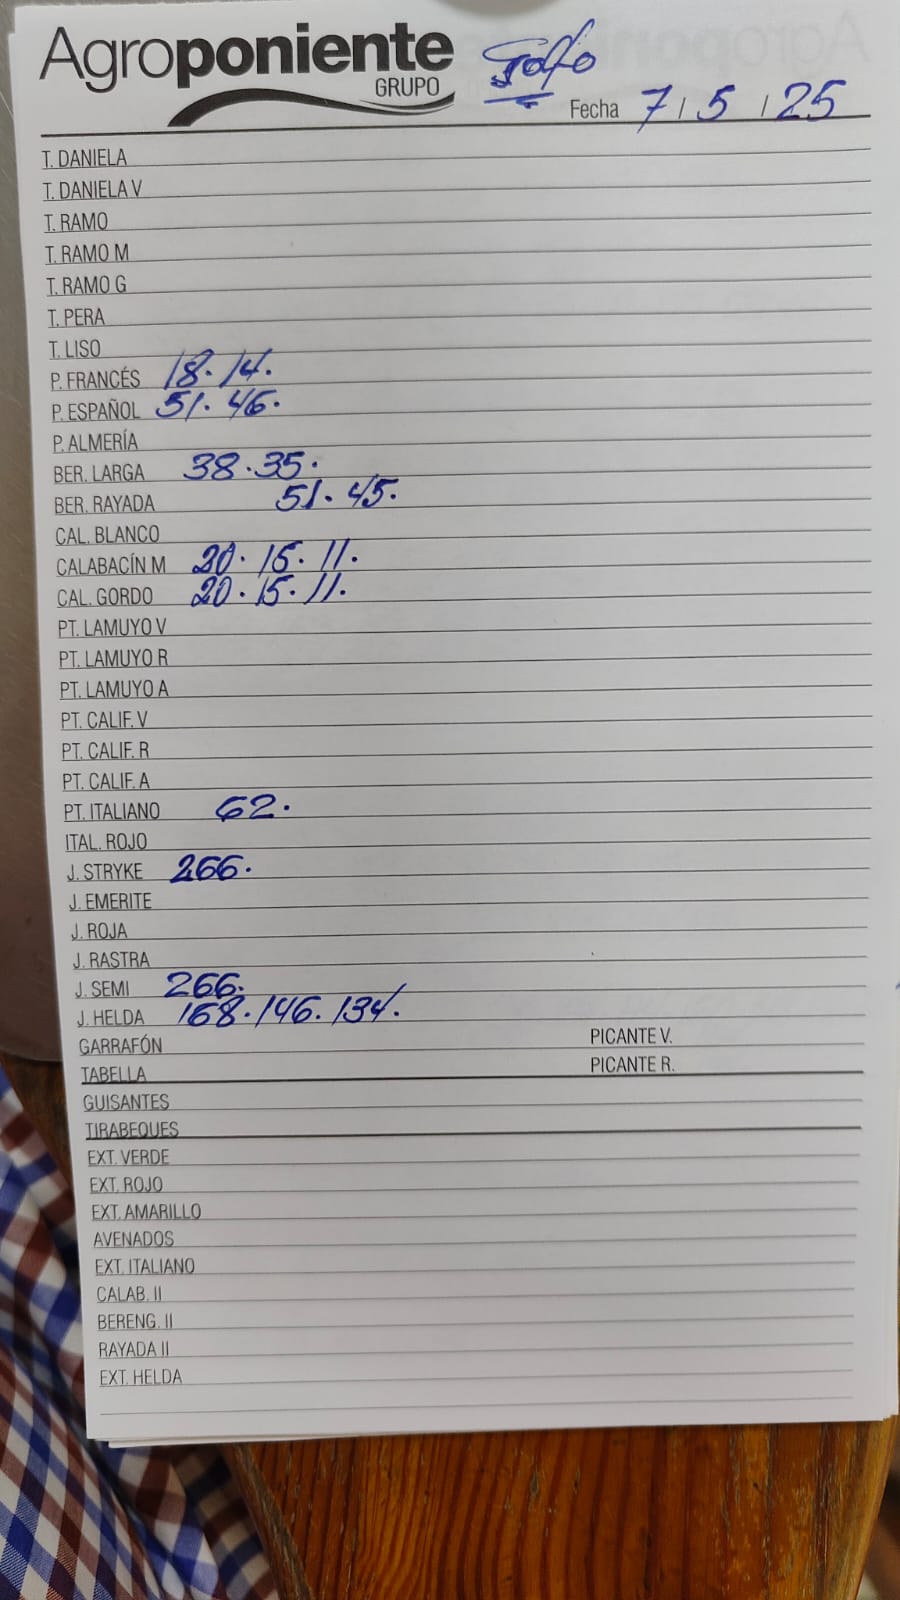 Agroponiente
GRUPO
Fecha 7 / 5 / 25
T. DANIELA
T. DANIELA V
T. RAMO
T. RAMO M
T. RAMO G
T. PERA
T. LISO
P. FRANCÉS 18. 14.
P. ESPAÑOL 51. 46.
P. ALMERÍA
BER. LARGA 38. 35.
BER. RAYADA 51. 45.
CAL. BLANCO
CALABACÍN M 20. 15. 11.
CAL. GORDO 20. 15. 11.
PT. LAMUYO V
PT. LAMUYO R
PT. LAMUYO A
PT. CALIF. V
PT. CALIF. R
PT. CALIF. A
PT. ITALIANO 62.
ITAL. ROJO
J. STRYKE 266.
J. EMERITE
J. ROJA
J. RASTRA
J. SEMI 266.
J. HELDA 168. 146. 134.
GARRAFÓN PICANTE V.
TABELLA PICANTE R.
GUISANTES
TIRABEQUES
EXT. VERDE
EXT. ROJO
EXT. AMARILLO
AVENADOS
EXT. ITALIANO
CALAB. II
BERENG. II
RAYADA II
EXT. HELDA